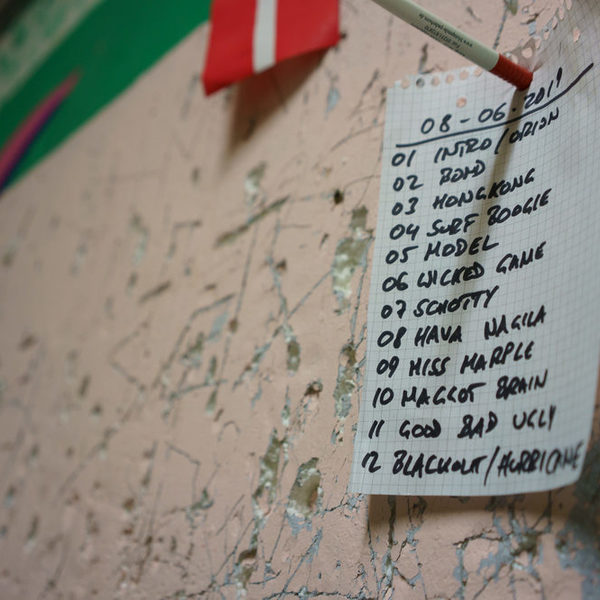 08-06-2019
01 INTRO/ORION
02 BOND
03 HONGKONG
04 SURF BOOGIE
05 MODEL
06 WICKED GAME
07 SCHOTTY
08 HAVA NAGILA
09 MISS MARPLE
10 MAGGOT BRAIN
11 GOOD BAD UGLY
12 BLACKOUT/HURRICANE